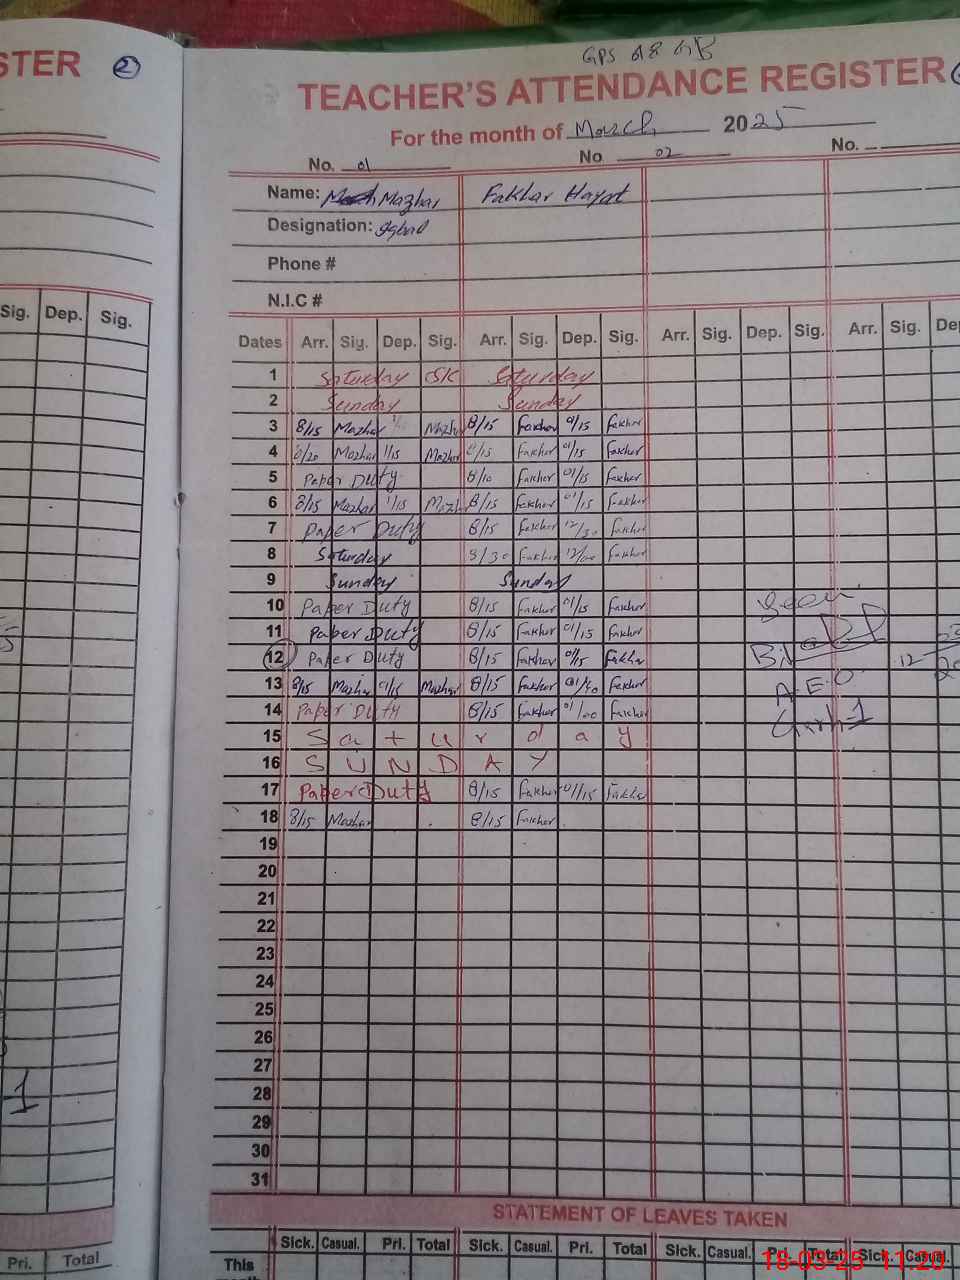 STER 2
GPS
TEACHER'S ATTENDANCE REGISTER
For the month of March 2025
No. 01 No 02 No.
Name: Mazhar Fakhar Hayat
Designation: Iqbal
Phone #
N.I.C #
Sig. Dep. Sig.
Dates Arr. Sig. Dep. Sig. Arr. Sig. Dep. Sig. Arr. Sig. Dep. Sig. Arr. Sig. De
1 Saturday Saturday
2 Sunday Sunday
3 8/15 Mazhar Mazhar 8/15 Fakhar 01/15 Fakhar
4 8/20 Mazhar 1/15 Mazhar 8/15 Fakhar 01/15 Fakhar
5 Paper Duty 8/10 Fakhar 01/15 Fakhar
6 8/15 Mazhar 1/15 Mazhar 8/15 Fakhar 01/15 Fakhar
7 Paper Duty 8/15 Fakhar 12/30 Fakhar
8 Saturday 8/30 Fakhar 12/00 Fakhar
9 Sunday Sunday
10 Paper Duty 8/15 Fakhar 01/15 Fakhar
11 Paper Duty 8/15 Fakhar 01/15 Fakhar
12 Paper Duty 8/15 Fakhar 01/15 Fakhar
13 8/15 Mazhar 01/15 Mazhar 8/15 Fakhar Fakhar
14 Paper Duty 8/15 Fakhar 01/00 Fakhar
15 Saturday
16 SUNDAY
17 Paper Duty 8/15 Fakhar 01/15 Fakhar
18 8/15 Mazhar 8/15 Fakhar
19
20
21
22
23
24
25
26
27
28
29
30
31
Seen
A.E.O
12
1
STATEMENT OF LEAVES TAKEN
Pri. Total
Sick. Casual. Pri. Total Sick. Casual. Pri. Total Sick. Casual. Pri. Total Sick. Casual.
This
18-03-25 11:20